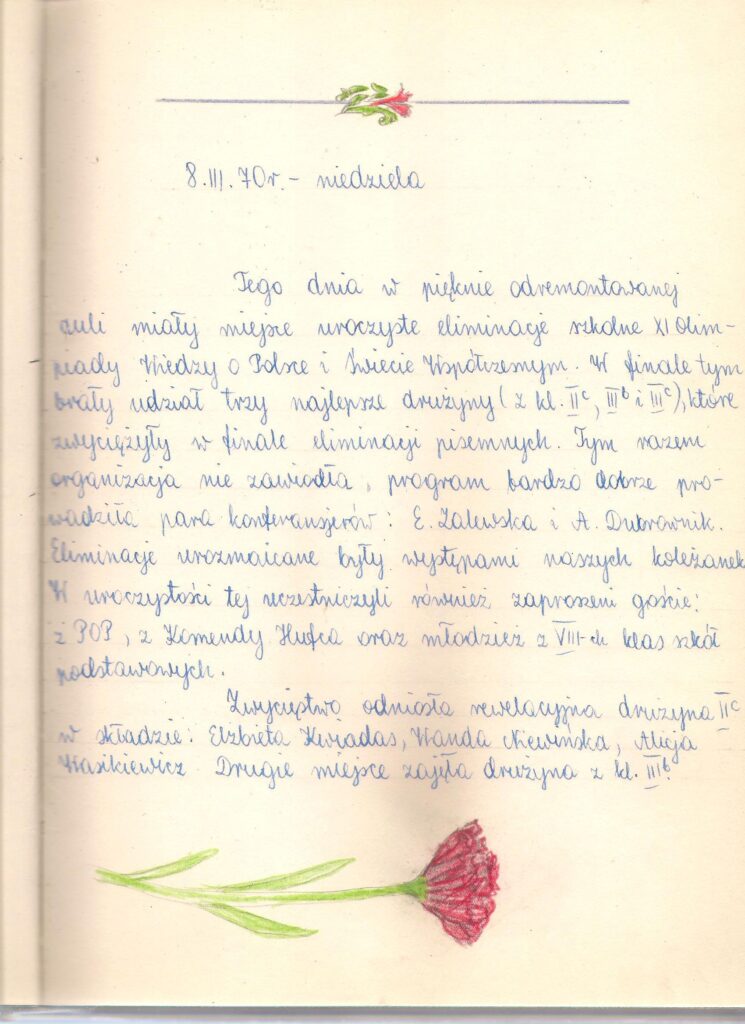 8.III.70r. - niedziela
Tego dnia w pięknie odremontowanej
auli miały miejsce uroczyste eliminacje szkolne XI Olim-
piady Wiedzy o Polsce i Świecie Współczesnym. W finale tym
brały udział trzy najlepsze drużyny (z kl. IIc, IIIb i IIIc), które
zwyciężyły w finale eliminacji pisemnych. Tym razem
organizacja nie zawiodła, program bardzo dobrze pro-
wadziła para konferansjerów: E. Zalewska i A. Dubrownik.
Eliminacje urozmaicane były występami naszych koleżanek
W uroczystości tej uczestniczyli również zaproszeni goście:
z POP, z Komendy Hufca oraz młodzież z VIII-ch klas szkół
podstawowych.
Zwycięstwo odniosła rewelacyjna drużyna IIc
w składzie: Elżbieta Kwiadas, Wanda Niewińska, Alicja
Wasikiewicz Drugie miejsce zajęła drużyna z kl. IIIb.